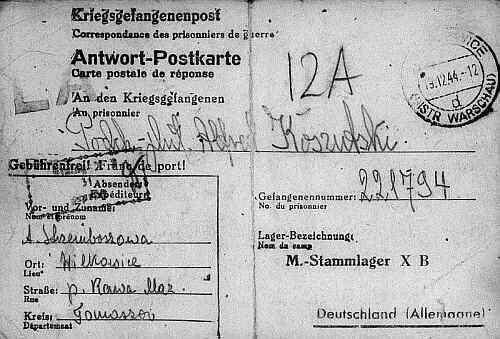 Kriegsgefangenenpost
Correspondance des prisonniers de guerre
Antwort-Postkarte
Carte postale de réponse
12A
An den Kriegsgefangenen
Au prisonnier
19.12.44.-12
d
(DISTR. WARSCHAU)
Alfred
Gebührenfrei! Franc de port!
Absender:
Expéditeur:
Vor- und Zuname:
Nom et prénom
Gefangenennummer: 221794
No. du prisonnier
Ort: Wilkowice
Lieu
Lager-Bezeichnung:
Nom du camp
M.-Stammlager X B
Straße: p. Rawa Maz.
Rue
Kreis: Tomaszów
Département
Deutschland (Allemagne)